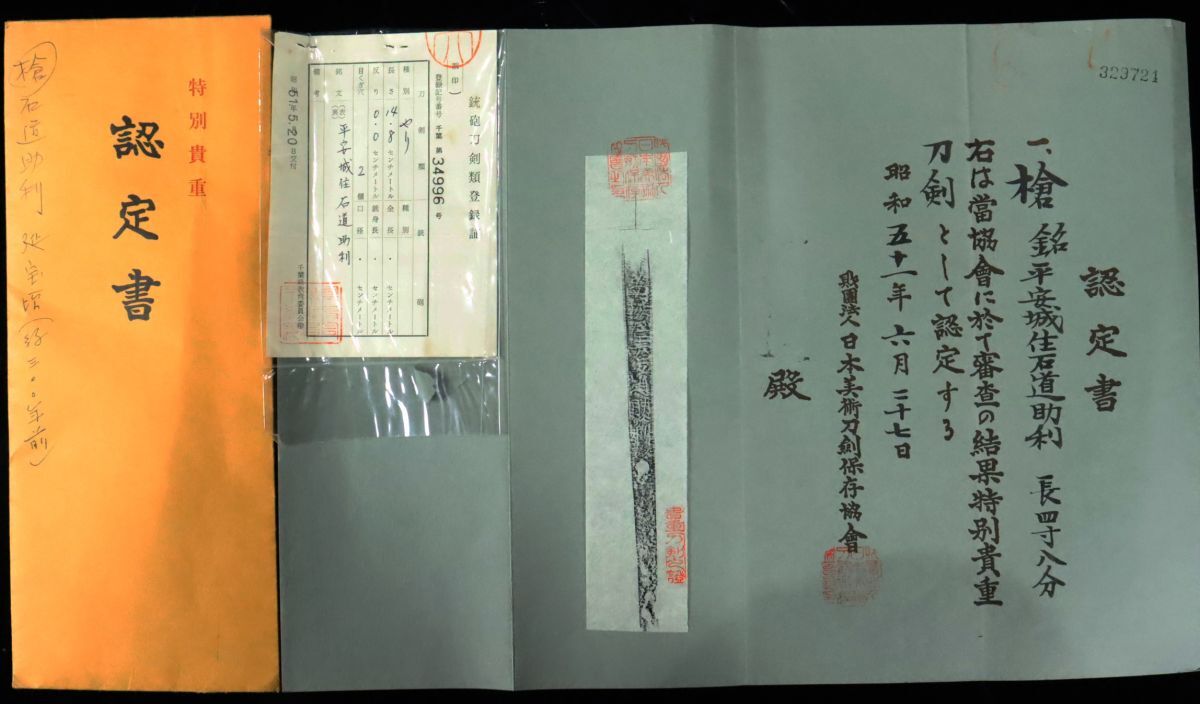 特別貴重
認定書
槍
石道助利 延宝頃(約三〇〇年前)
銃砲刀剣類登録証
登録記号番号 千葉 第 34996 号
種別 やり 種別
長さ 14.8 センチメートル 全長 . センチメートル
反り 0.0 センチメートル 銃身長 . センチメートル
目くぎ穴 2 口径 . センチメートル
銘文 (表) 平安城住石道助利
(裏)
備考
昭和51年5.20日交付
千葉県教育委員会
329721
認定書
一、槍 銘 平安城住石道助利 長四寸八分
右は當協會に於て審査の結果特別貴重
刀剣として認定する
昭和五十一年六月二十七日
財團法人日本美術刀劍保存協會
殿